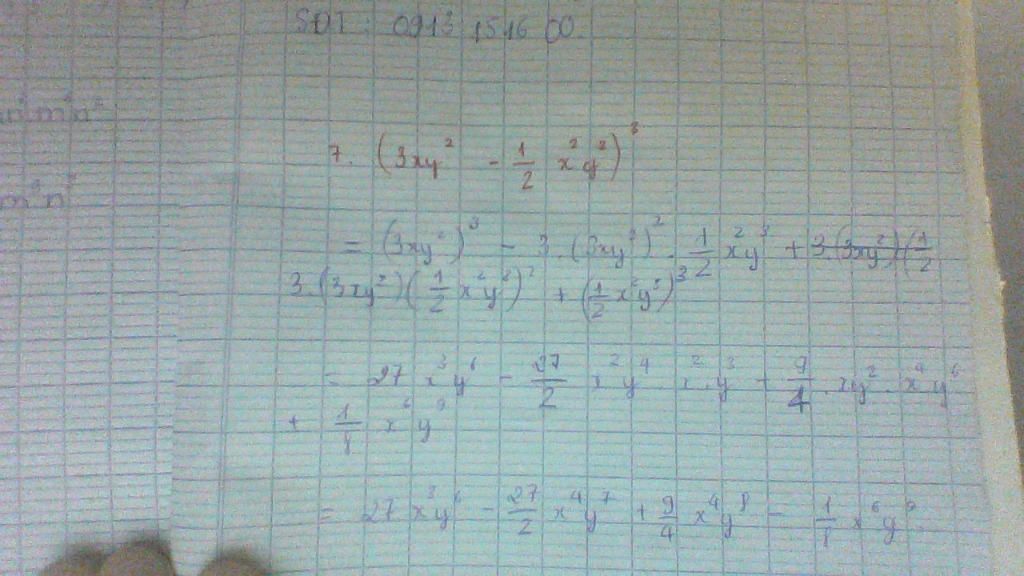 SĐT : 0913 1516 00.
7. (3xy² - 1/2 x²y³)³
= (3xy²)³ - 3.(3xy²)² . 1/2 x²y³ + 3.(3xy²)(1/2
3.(3xy²)(1/2 x²y³)² + (1/2 x²y³)³
= 27 x³y⁶ - 27/2 x²y⁴ . x²y³ + 9/4 . xy² . x⁴y⁶
+ 1/8 x⁶y⁹
= 27x³y⁶ - 27/2 x⁴y⁷ + 9/4 x⁴y⁸ - 1/8 x⁶y⁹